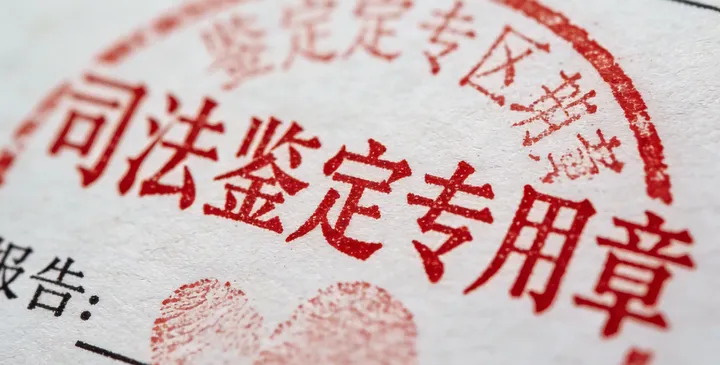 鉴定定专区
司法鉴定专用章
报告：